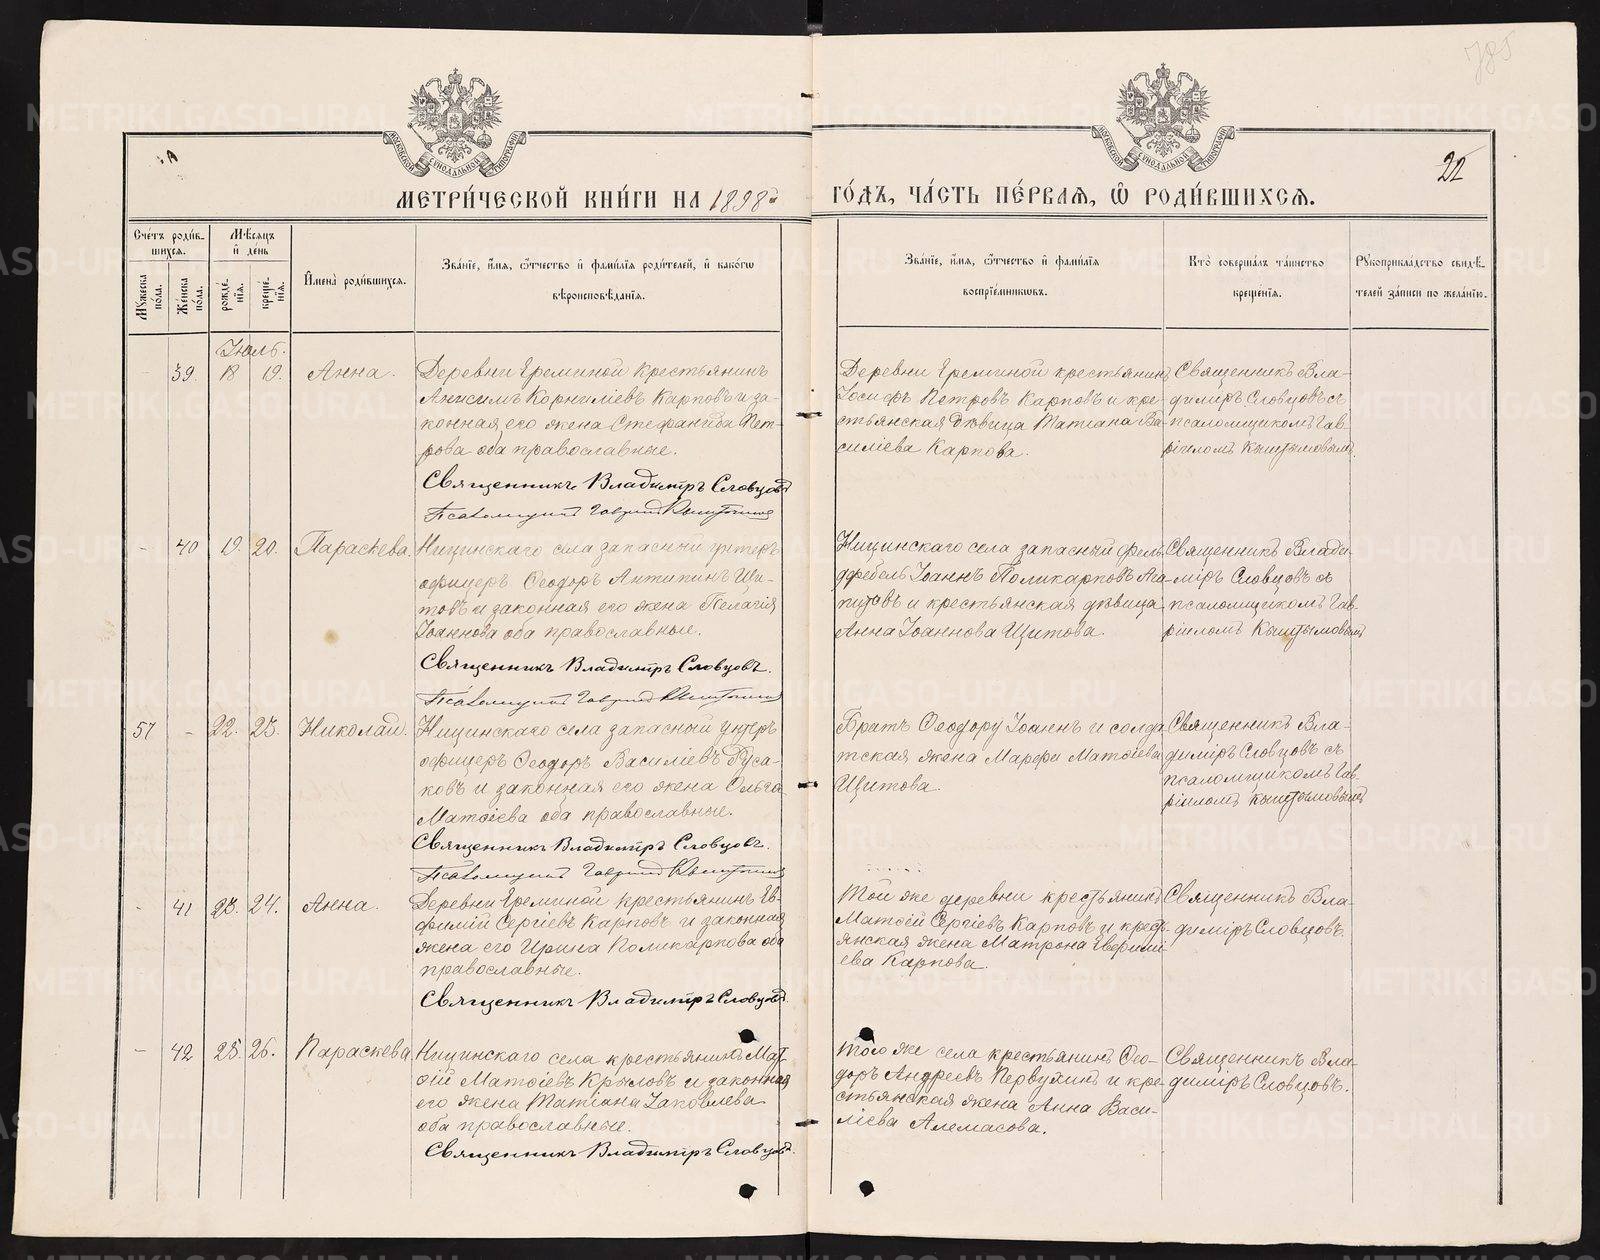 785
22
МОСКОВСКОЙ СѴНОДАЛЬНОЙ ТИПОГРАФІИ
МОСКОВСКОЙ СѴНОДАЛЬНОЙ ТИПОГРАФІИ
МЕТРИ́ЧЕСКОЙ КНИ́ГИ НА 1898й
ГО́ДЪ, ЧА́СТЬ ПЕ́РВАѦ, Ѡ҆ РОДИ́ВШИХСѦ.
Сче́тъ роди́в-
шихсѧ.
Мꙋ́жеска
по́ла.
Же́нска
по́ла.
Мѣ́сѧцъ
и҆ де́нь
рожде́-
нїѧ.
креще́-
нїѧ.
И҆мена̀ роди́вшихсѧ.
Зва́нїе, и҆́мѧ, ѻ҆́тчество и҆ фами́лїѧ роди́телей, и҆ како́гѡ
вѣроисповѣ́данїѧ.
Зва́нїе, и҆́мѧ, ѻ҆́тчество и҆ фами́лїѧ
воспрїе́мникѡвъ.
Кто̀ соверша́лъ та́инство
креще́нїѧ.
Рꙋкоприкла́дство свидѣ́-
телей за́писи по жела́нїю.
Іюль.
39. 18 19. Анна.
Деревни Ереминой крестьянинъ
Анисимъ Корниліевъ Карповъ и за-
конная его жена Стефанида Пет-
рова оба православные.
Священникъ Владиміръ Словцовъ
Псаломщикъ Гавріилъ Кыштымовъ
Деревни Ереминой крестьянинъ
Іосифъ Петровъ Карповъ и кре-
стьянская дѣвица Татіана Ва-
силіева Карпова.
Священникъ Вла-
диміръ Словцовъ съ
псаломщикомъ Гав-
ріиломъ Кыштымовымъ.
- 40 19. 20. Параскева.
Ницинскаго села запасный унтеръ
офицеръ Ѳеодоръ Антипинъ Щи-
товъ и законная его жена Пелагія
Іоаннова оба православные.
Священникъ Владиміръ Словцовъ.
Псаломщикъ Гавріилъ Кыштымовъ
Ницинскаго села запасный фель-
дфебель Іоаннъ Поликарповъ Ага-
питовъ и крестьянская дѣвица
Анна Іоаннова Щитова.
Священникъ Влади-
міръ Словцовъ съ
псаломщикомъ Гав-
ріиломъ Кыштымовымъ
57 - 22. 23. Николай.
Ницинскаго села запасный унтеръ
офицеръ Ѳеодоръ Василіевъ Руса-
ковъ и законная его жена Ольга
Матѳіева оба православные.
Священникъ Владиміръ Словцовъ.
Псаломщикъ Гавріилъ Кыштымовъ
Братъ Ѳеодору Іоаннъ и солда-
тская жена Марѳа Матѳіева
Щитова.
Священникъ Вла-
диміръ Словцовъ съ
псаломщикомъ Гав-
ріиломъ Кыштымовымъ
- 41 23. 24. Анна.
Деревни Ереминой крестьянинъ Ев-
фимій Сергіевъ Карповъ и законная
жена его Ирина Поликарпова оба
православные.
Священникъ Владиміръ Словцовъ
Той же деревни крестьянинъ
Матѳій Сергіевъ Карповъ и крест-
янская жена Матрона Евфими-
ева Карпова.
Священникъ Вла-
диміръ Словцовъ.
- 42 25. 26. Параскева
Ницинскаго села крестьянинъ Мат-
ѳій Матѳіевъ Крыловъ и законная
его жена Татіана Іаковлева
оба православные.
Священникъ Владиміръ Словцовъ.
Того же села крестьянинъ Ѳео-
доръ Андреевъ Первухинъ и кре-
стьянская жена Анна Васи-
ліева Алемасова.
Священникъ Вла-
диміръ Словцовъ.